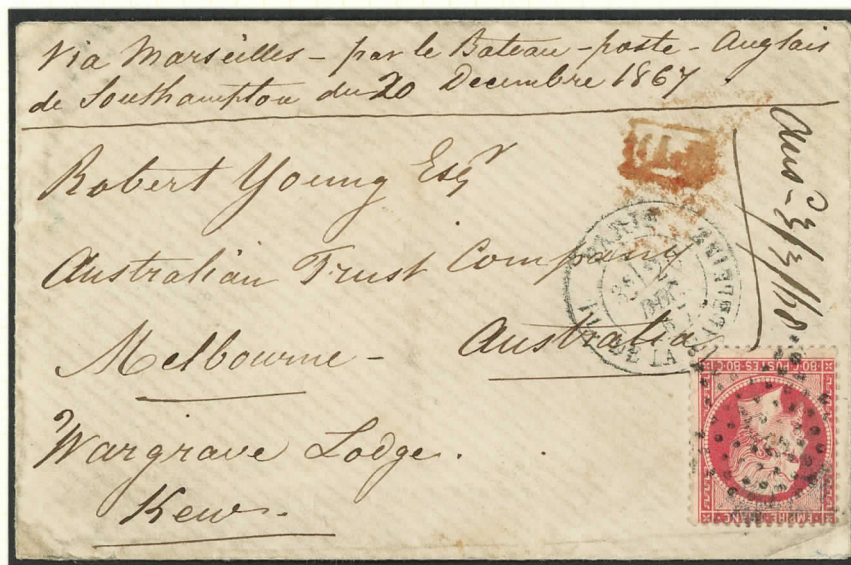 Via Marseilles - par le Bateau-poste-Anglais
de Southampton du 20 Decembre 1867.
Robert Young Esqr
Australian Trust Company
Melbourne - Australia
Wargrave Lodge.
Kew.
Ans. 3/3/68.
PARIS
DE LA
EMPIRE FRANC